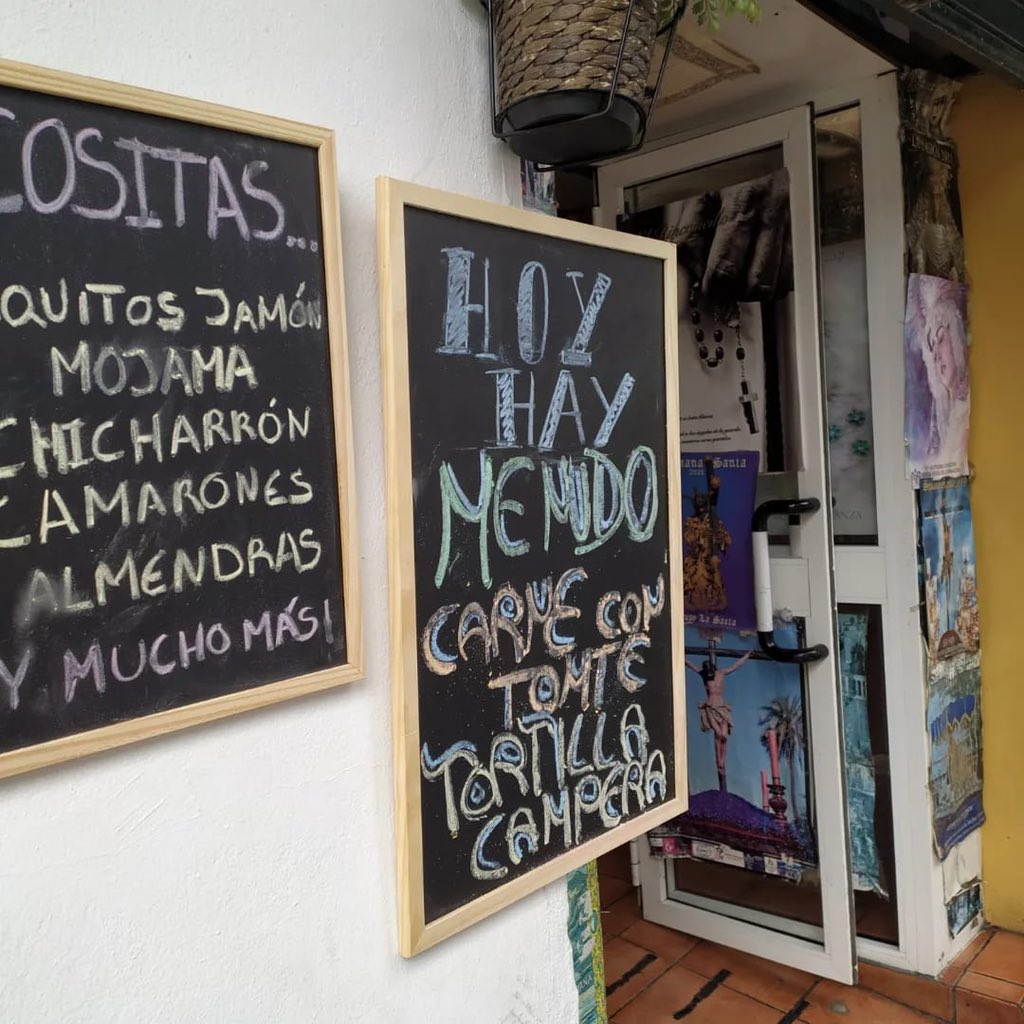 COSITAS...
QUITOS JAMÓN
MOJAMA
CHICHARRÓN
CAMARONES
ALMENDRAS
Y MUCHO MÁS!
HOY
HAY
MENUDO
CARNE CON
TOMTE
TORTILLA
CAMPERA
mana Santa